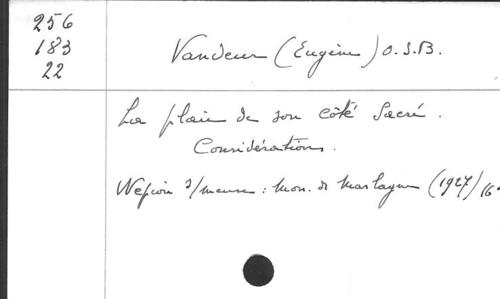 256
183
22
Vandeur (Eugène) O.S.B.
La plaie de son côté Sacré.
Considérations.
Wépion s/meuse : Mon. de Marlagne (1927) 16°